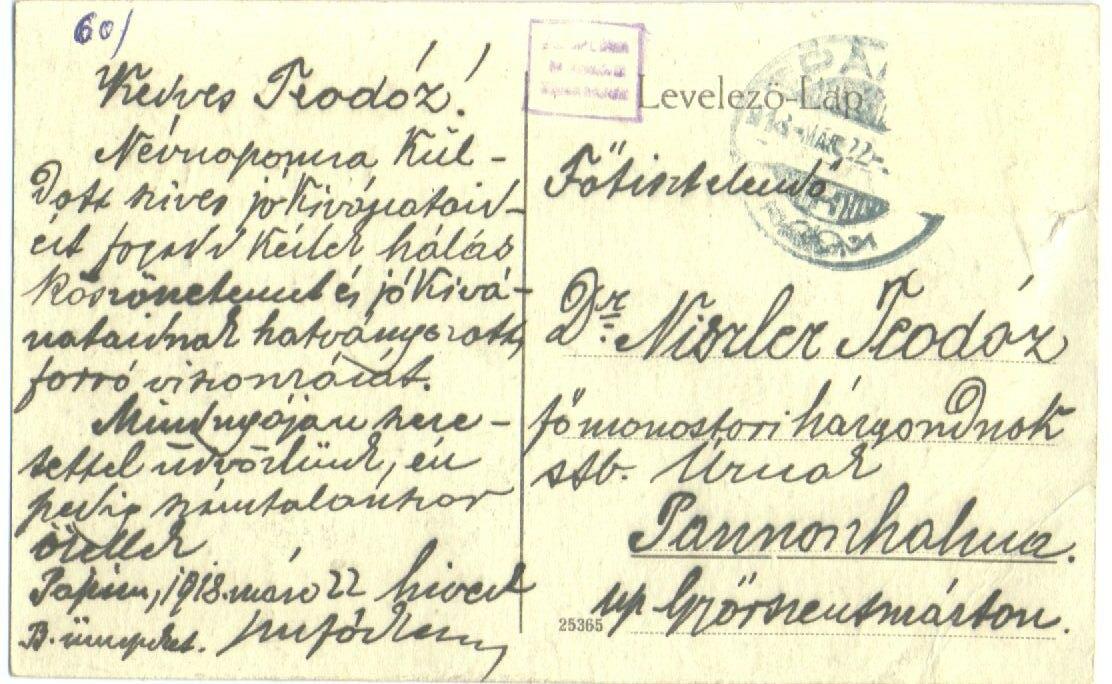 60/
Kedves Teodóz!
Névnapomra Kül-
dött szives jó Kivánataid-
ért fogadd Kérlek hálás
Köszönetemet és jó Kivá-
nataidnak hatványozott,
forró viszonzását.
Mindnyájan szere-
tettel üdvözlünk, én
pedig számtalanszor
ölellek
Pápán, 1918. márc 22 hived
B. ünnepeket.
Levelező-Lap
PÁPA
918 MÁR. 22
Főtisztelendő
Dr. Niszler Teodóz
főmonostori házgondnok
stb. Úrnak
Pannonhalma.
up Győrszentmárton.
25365